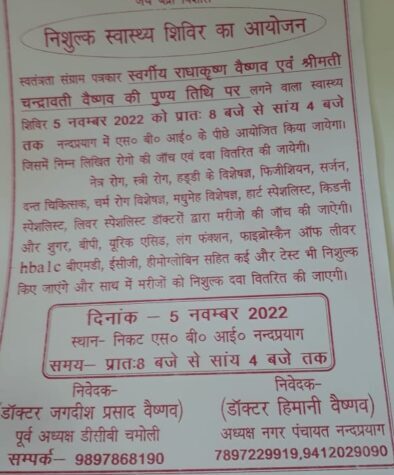 जय बद्री विशाल
निशुल्क स्वास्थ्य शिविर का आयोजन
स्वतंत्रता संग्राम पत्रकार स्वर्गीय राधाकृष्ण वैष्णव एवं श्रीमती
चन्द्रावती वैष्णव की पुण्य तिथि पर लगने वाला स्वास्थ्य
शिविर 5 नवम्बर 2022 को प्रातः 8 बजे से सांय 4 बजे
तक नन्दप्रयाग में एस० बी० आई० के पीछे आयोजित किया जायेगा।
जिसमें निम्न लिखित रोगो की जाँच एवं दवा वितरित की जायेगी।
नेत्र रोग, स्त्री रोग, हड्डी के विशेषज्ञ, फिजीशियन, सर्जन,
दन्त चिकित्सक, चर्म रोग विशेषज्ञ, मधुमेह विशेषज्ञ, हार्ट स्पेशलिस्ट, किडनी
स्पेशलिस्ट, लिवर स्पेशलिस्ट डॉक्टरों द्वारा मरीजो की जाँच की जाऐगी।
और शुगर, बीपी, यूरिक एसिड, लंग फंक्शन, फाइब्रोस्कैन ऑफ लीवर
hbalc बीएमडी, ईसीजी, हीमोग्लोबिन सहित कई और टेस्ट भी निशुल्क
किए जाएंगे और साथ में मरीजों को निशुल्क दवा वितरित की जाएगी।
दिनांक – 5 नवम्बर 2022
स्थान- निकट एस० बी० आई० नन्दप्रयाग
समय- प्रातः8 बजे से सांय 4 बजे तक
निवेदक-
(डॉक्टर जगदीश प्रसाद वैष्णव)
पूर्व अध्यक्ष डीसीबी चमोली
सम्पर्क- 9897868190
निवेदक-
(डॉक्टर हिमानी वैष्णव)
अध्यक्ष नगर पंचायत नन्दप्रयाग
7897229919,9412029090